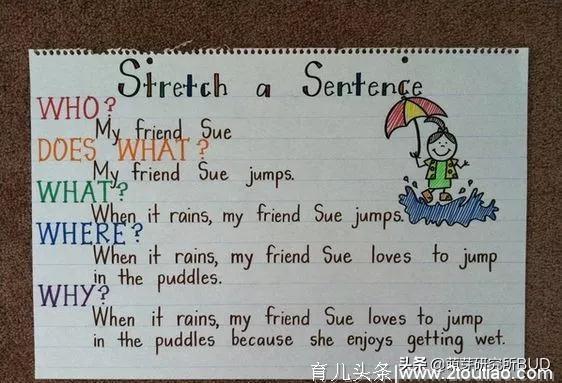 Stretch a Sentence
WHO?
My friend Sue
DOES WHAT?
My friend Sue jumps.
WHAT?
When it rains, my friend Sue jumps.
WHERE?
When it rains, my friend Sue loves to jump
in the puddles.
WHY?
When it rains, my friend Sue loves to jump
in the puddles because she enjoys getting wet.
头条@萌芽研究所BUD
育儿头条|www.2toutiao.com